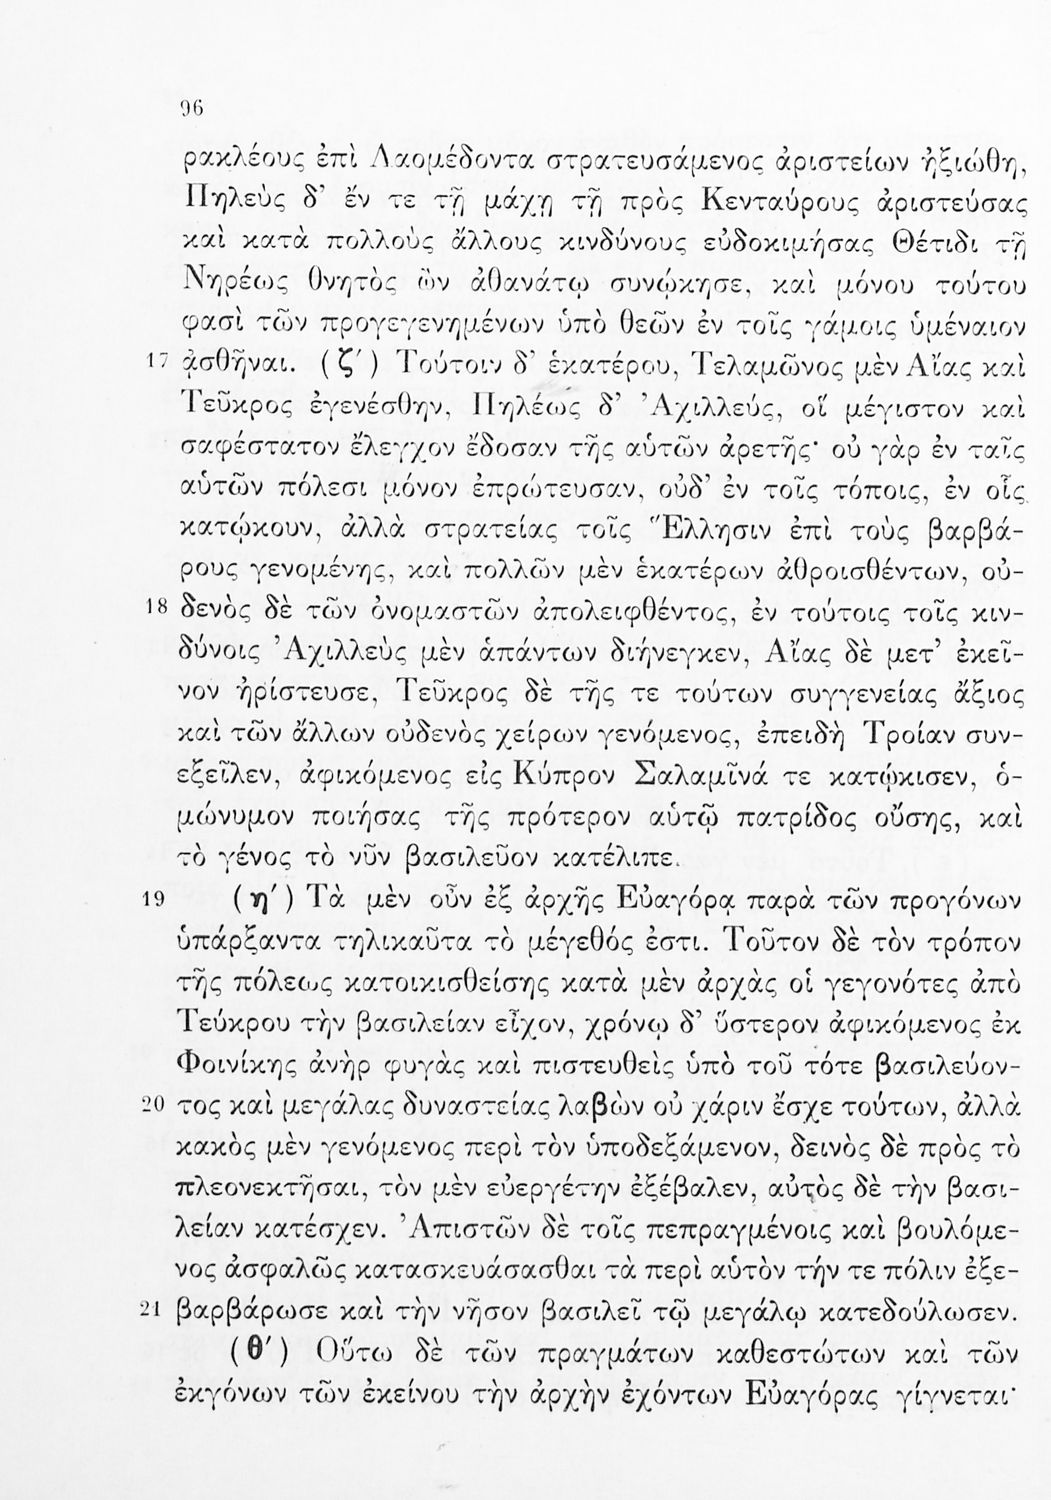 96
ρακλέους ἐπὶ Λαομέδοντα στρατευσάμενος ἀριστείων ἠξιώθη,
Πηλεὺς δ’ ἔν τε τῇ μάχῃ τῇ πρὸς Κενταύρους ἀριστεύσας
καὶ κατὰ πολλοὺς ἄλλους κινδύνους εὐδοκιμήσας Θέτιδι τῇ
Νηρέως θνητὸς ὢν ἀθανάτῳ συνῴκησε, καὶ μόνου τούτου
φασὶ τῶν προγεγενημένων ὑπὸ θεῶν ἐν τοῖς γάμοις ὑμέναιον
17 ᾀσθῆναι. (ζ′) Τούτοιν δ’ ἑκατέρου, Τελαμῶνος μὲν Αἴας καὶ
Τεῦκρος ἐγενέσθην, Πηλέως δ’ Ἀχιλλεύς, οἳ μέγιστον καὶ
σαφέστατον ἔλεγχον ἔδοσαν τῆς αὑτῶν ἀρετῆς· οὐ γὰρ ἐν ταῖς
αὑτῶν πόλεσι μόνον ἐπρώτευσαν, οὐδ’ ἐν τοῖς τόποις, ἐν οἷς
κατῴκουν, ἀλλὰ στρατείας τοῖς Ἕλλησιν ἐπὶ τοὺς βαρβά-
ρους γενομένης, καὶ πολλῶν μὲν ἑκατέρων ἀθροισθέντων, οὐ-
18 δενὸς δὲ τῶν ὀνομαστῶν ἀπολειφθέντος, ἐν τούτοις τοῖς κιν-
δύνοις Ἀχιλλεὺς μὲν ἁπάντων διήνεγκεν, Αἴας δὲ μετ’ ἐκεῖ-
νον ἠρίστευσε, Τεῦκρος δὲ τῆς τε τούτων συγγενείας ἄξιος
καὶ τῶν ἄλλων οὐδενὸς χείρων γενόμενος, ἐπειδὴ Τροίαν συν-
εξεῖλεν, ἀφικόμενος εἰς Κύπρον Σαλαμῖνά τε κατῴκισεν, ὁ-
μώνυμον ποιήσας τῆς πρότερον αὑτῷ πατρίδος οὔσης, καὶ
τὸ γένος τὸ νῦν βασιλεῦον κατέλιπε.
19 (η′) Τὰ μὲν οὖν ἐξ ἀρχῆς Εὐαγόρᾳ παρὰ τῶν προγόνων
ὑπάρξαντα τηλικαῦτα τὸ μέγεθός ἐστι. Τοῦτον δὲ τὸν τρόπον
τῆς πόλεως κατοικισθείσης κατὰ μὲν ἀρχὰς οἱ γεγονότες ἀπὸ
Τεύκρου τὴν βασιλείαν εἶχον, χρόνῳ δ’ ὕστερον ἀφικόμενος ἐκ
Φοινίκης ἀνὴρ φυγὰς καὶ πιστευθεὶς ὑπὸ τοῦ τότε βασιλεύον-
20 τος καὶ μεγάλας δυναστείας λαβὼν οὐ χάριν ἔσχε τούτων, ἀλλὰ
κακὸς μὲν γενόμενος περὶ τὸν ὑποδεξάμενον, δεινὸς δὲ πρὸς τὸ
πλεονεκτῆσαι, τὸν μὲν εὐεργέτην ἐξέβαλεν, αὐτὸς δὲ τὴν βασι-
λείαν κατέσχεν. Ἀπιστῶν δὲ τοῖς πεπραγμένοις καὶ βουλόμε-
νος ἀσφαλῶς κατασκευάσασθαι τὰ περὶ αὑτὸν τήν τε πόλιν ἐξε-
21 βαρβάρωσε καὶ τὴν νῆσον βασιλεῖ τῷ μεγάλῳ κατεδούλωσεν.
(θ′) Οὕτω δὲ τῶν πραγμάτων καθεστώτων καὶ τῶν
ἐκγόνων τῶν ἐκείνου τὴν ἀρχὴν ἐχόντων Εὐαγόρας γίγνεται·